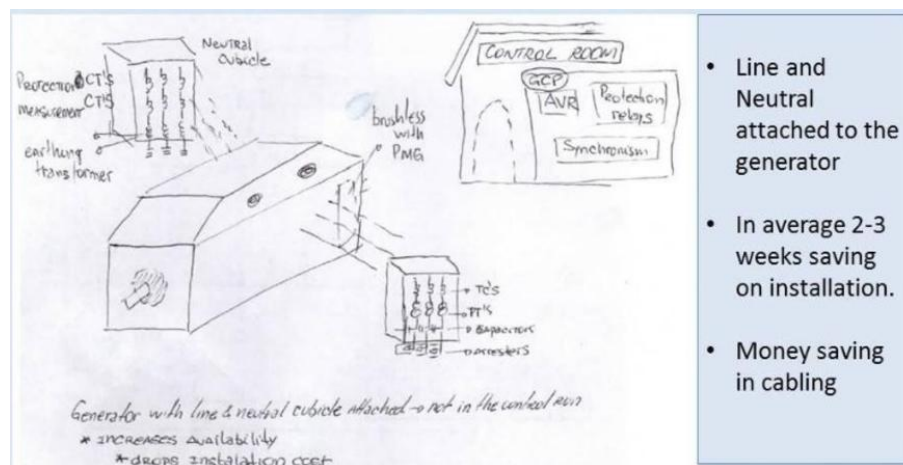 NEUTRAL
CUBICLE
PROTECTION CT'S
MEASUREMENT CT'S
earthing
transformer
brushless
with
PMG
CONTROL ROOM
GCP
AVR
Protection
relays
Synchronism
TC'S
PT'S
CAPACITORS
arresters
Generator with line & neutral cubicle attached → not in the control
* INCREASES Availability
* DROPS Instalation cost
• Line and
Neutral
attached to the
generator
• In average 2-3
weeks saving
on installation.
• Money saving
in cabling